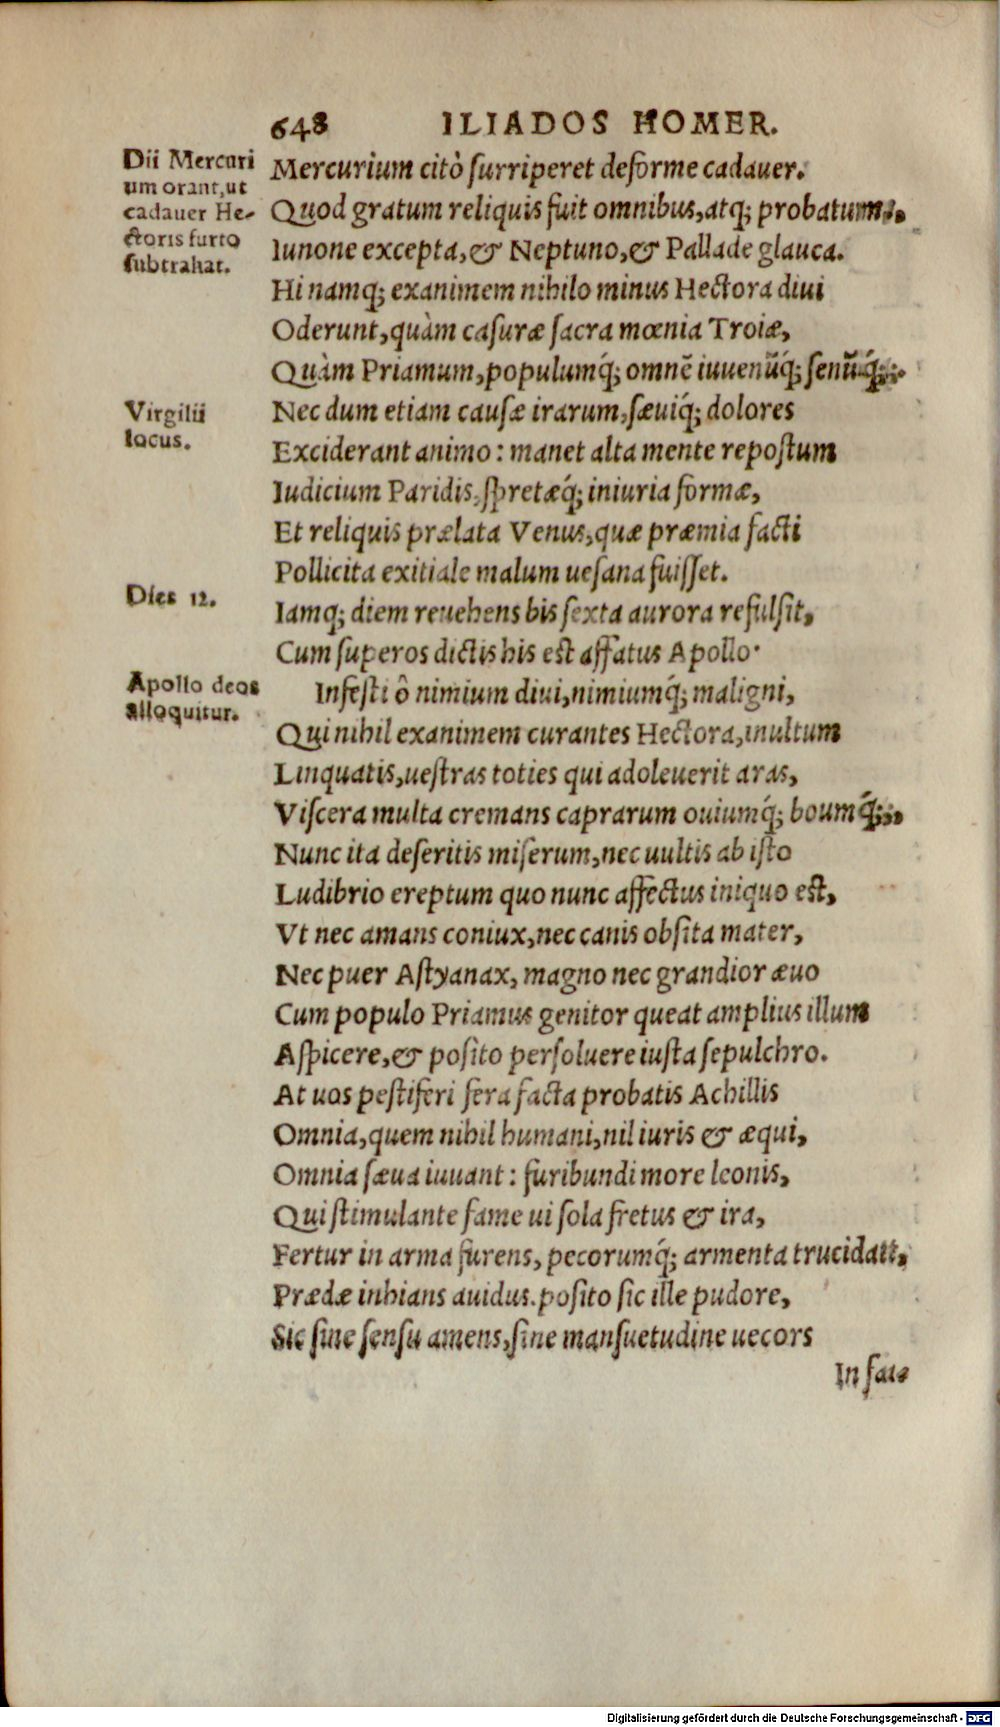 648 ILIADOS HOMER.
Dii Mercuri
um orant, ut
cadauer He-
ctoris furto
subtrahat.
Mercurium citò surriperet deforme cadauer.
Quod gratum reliquis fuit omnibus, atq; probatum.
Iunone excepta, & Neptuno, & Pallade glauca.
Hi namq; exanimem nihilo minus Hectora diui
Oderunt, quàm casuræ sacra mœnia Troiæ,
Quàm Priamum, populumq́; omnē iuuenūq́; senūq́;.
Virgilii
locus.
Nec dum etiam causæ irarum, sæuiq́; dolores
Exciderant animo: manet alta mente repostum
Iudicium Paridis, spretæq́; iniuria formæ,
Et reliquis prælata Venus, quæ præmia facti
Pollicita exitiale malum uesana fuisset.
Dies 12.
Iamq; diem reuehens bis sexta aurora refulsit,
Cum superos dictis his est affatus Apollo.
Apollo deos
alloquitur.
Infesti ô nimium diui, nimiumq́; maligni,
Qui nihil exanimem curantes Hectora, inultum
Linquatis, uestras toties qui adoleuerit aras,
Viscera multa cremans caprarum ouiumq́; boumq́;,
Nunc ita deseritis miserum, nec uultis ab isto
Ludibrio ereptum quo nunc affectus iniquo est,
Vt nec amans coniux, nec canis obsita mater,
Nec puer Astyanax, magno nec grandior æuo
Cum populo Priamus genitor queat amplius illum
Aspicere, & posito persoluere iusta sepulchro.
At uos pestiferi fera facta probatis Achillis
Omnia, quem nihil humani, nil iuris & æqui,
Omnia sæua iuuant: furibundi more leonis,
Qui stimulante fame ui sola fretus & ira,
Fertur in arma furens, pecorumq́; armenta trucidat,
Prædæ inhians auidus. posito sic ille pudore,
Sic sine sensu amens, sine mansuetudine uecors
In sata
Digitalisierung gefördert durch die Deutsche Forschungsgemeinschaft - DFG